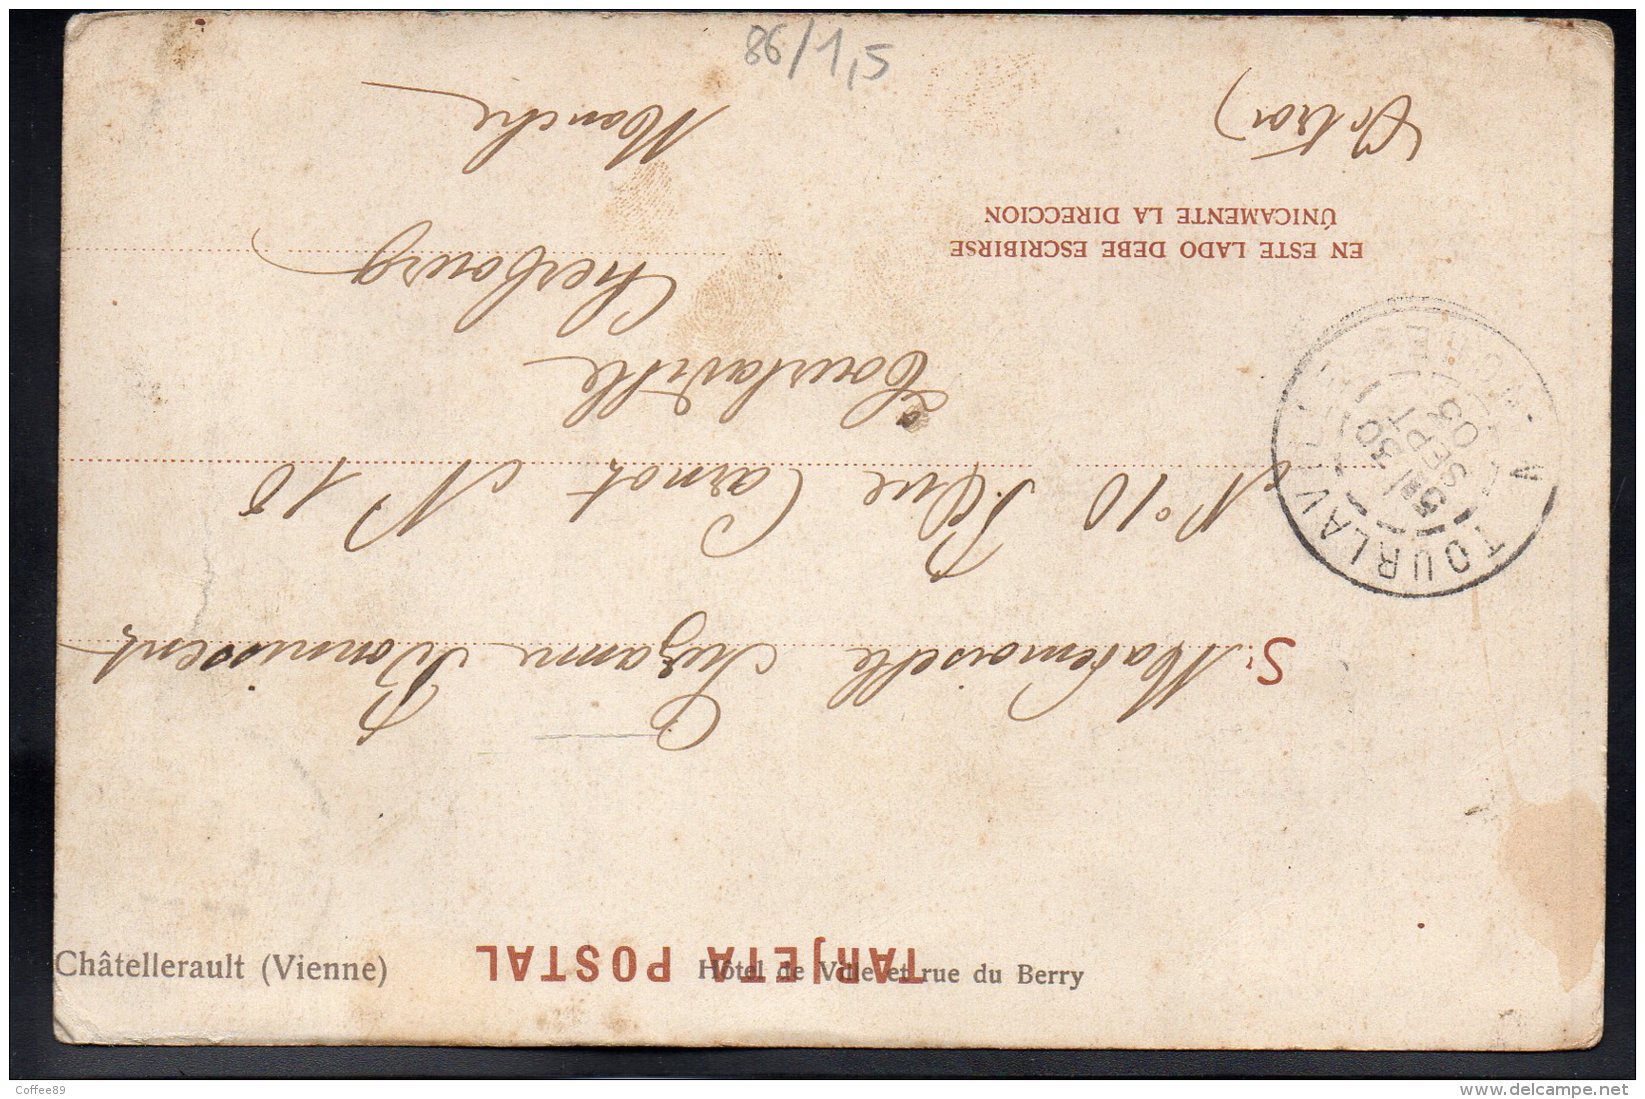 TARJETA POSTAL
Sr. Mademoiselle Suzanne Bonnissent
N° 10 Rue Carnot N° 10
Tourlaville
Cherbourg
Manche
EN ESTE LADO DEBE ESCRIBIRSE
ÚNICAMENTE LA DIRECCION
TOURLAVILLE
MANCHE
5E / 30
SEPT
03
86/1,5
Châtellerault (Vienne)
Hôtel de Ville et rue du Berry
Coffee89
www.delcampe.net